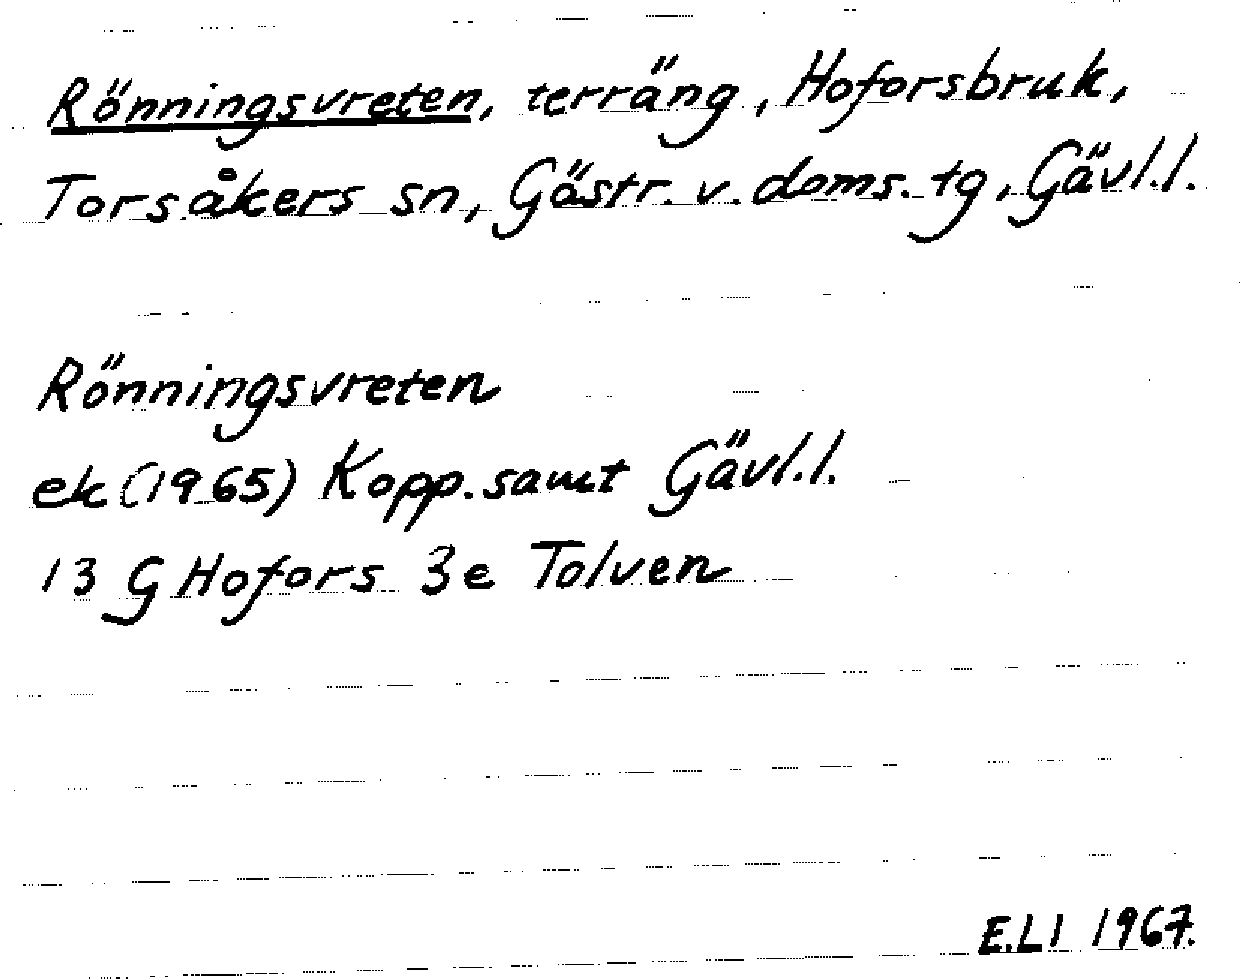 Rönningsvreten, terräng, Hoforsbruk,
Torsåkers sn, Gästr. v. doms. tg, Gävl.l.
Rönningsvreten
ek (1965) Kopp. samt Gävl.l.
13 G Hofors 3e Tolven
E.L1 1967.